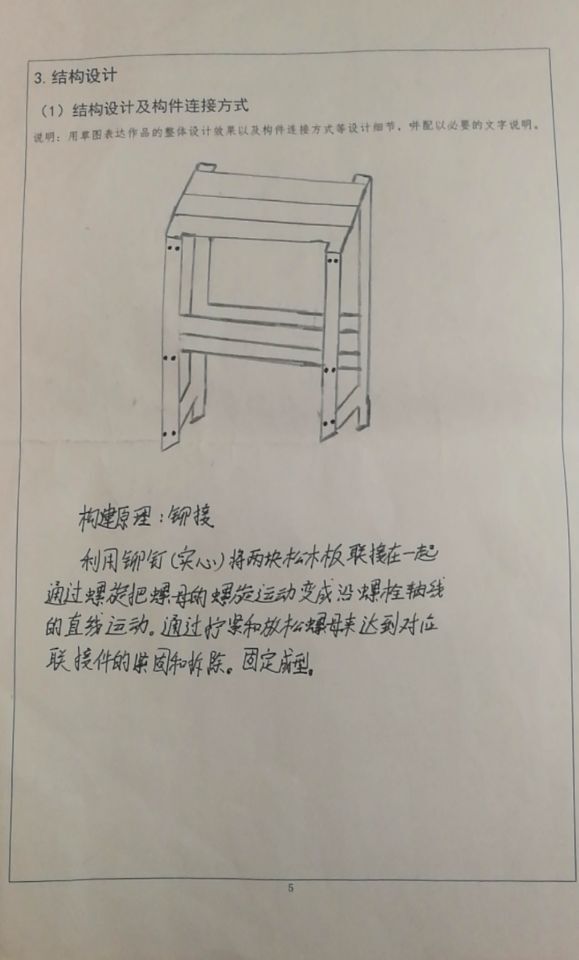 3. 结构设计
（1）结构设计及构件连接方式
说明：用草图表达作品的整体设计效果以及构件连接方式等设计细节，并配以必要的文字说明。
构建原理：铆接
利用铆钉(实心)将两块松木板联接在一起
通过螺旋把螺母的螺旋运动变成沿螺栓轴线
的直线运动。通过拧紧和放松螺母来达到对应
联接件的紧固和拆除。固定成型。
5